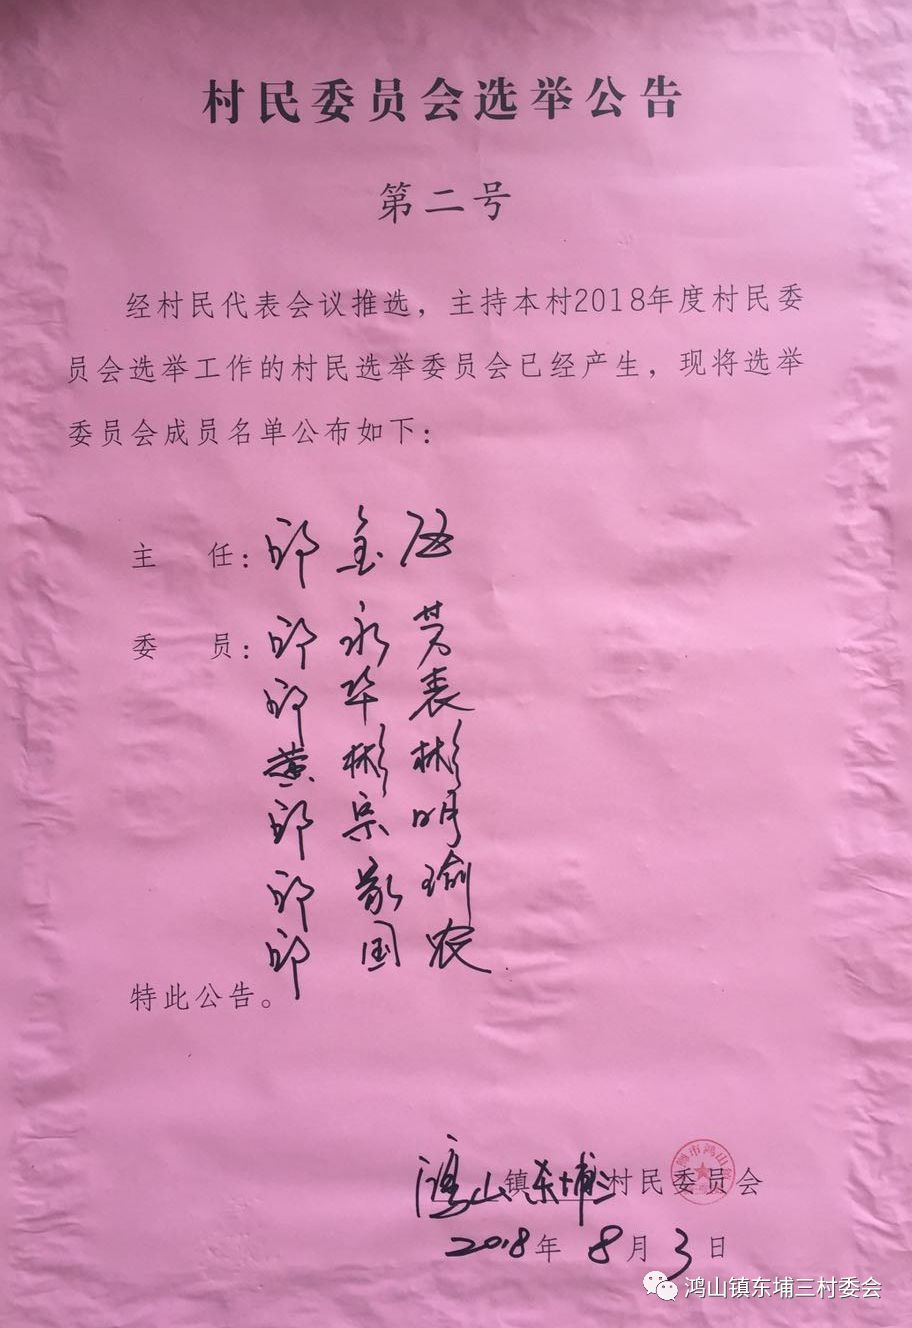 村民委员会选举公告
第二号
经村民代表会议推选，主持本村2018年度村民委
员会选举工作的村民选举委员会已经产生，现将选举
委员会成员名单公布如下：
主 任：邱金
委 员：邱永芳
邱华表
黄彬彬
邱宗明
邱瑜
邱国农
特此公告。
鸿山镇东埔三村民委员会
2018年8月3日
鸿山镇东埔三村委会